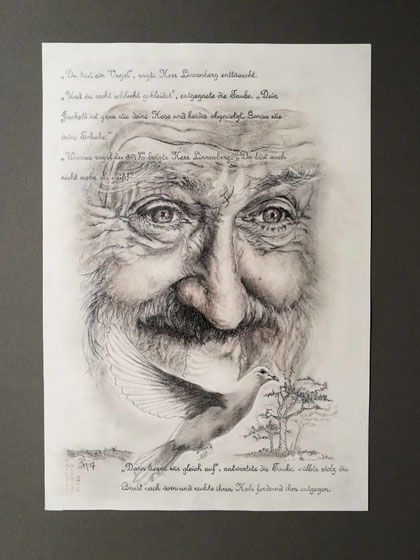 „Du bist ein Vogel", sagte Herr Linnenberg enttäuscht.
„Und du recht schlecht gekleidet", entgegnete die Taube. „Dein
Jackett ist grau wie deine Hose und beides abgewetzt. Genau wie
deine Schuhe."
„Warum sagst du das?", fragte Herr Linnenberg. „Du bist auch
nicht mehr als weiß!"
„Dann liegen wir gleich auf", antwortete die Taube, wölbte stolz die
Brust nach vorn und reckte ihren Hals fordernd ihm entgegen.